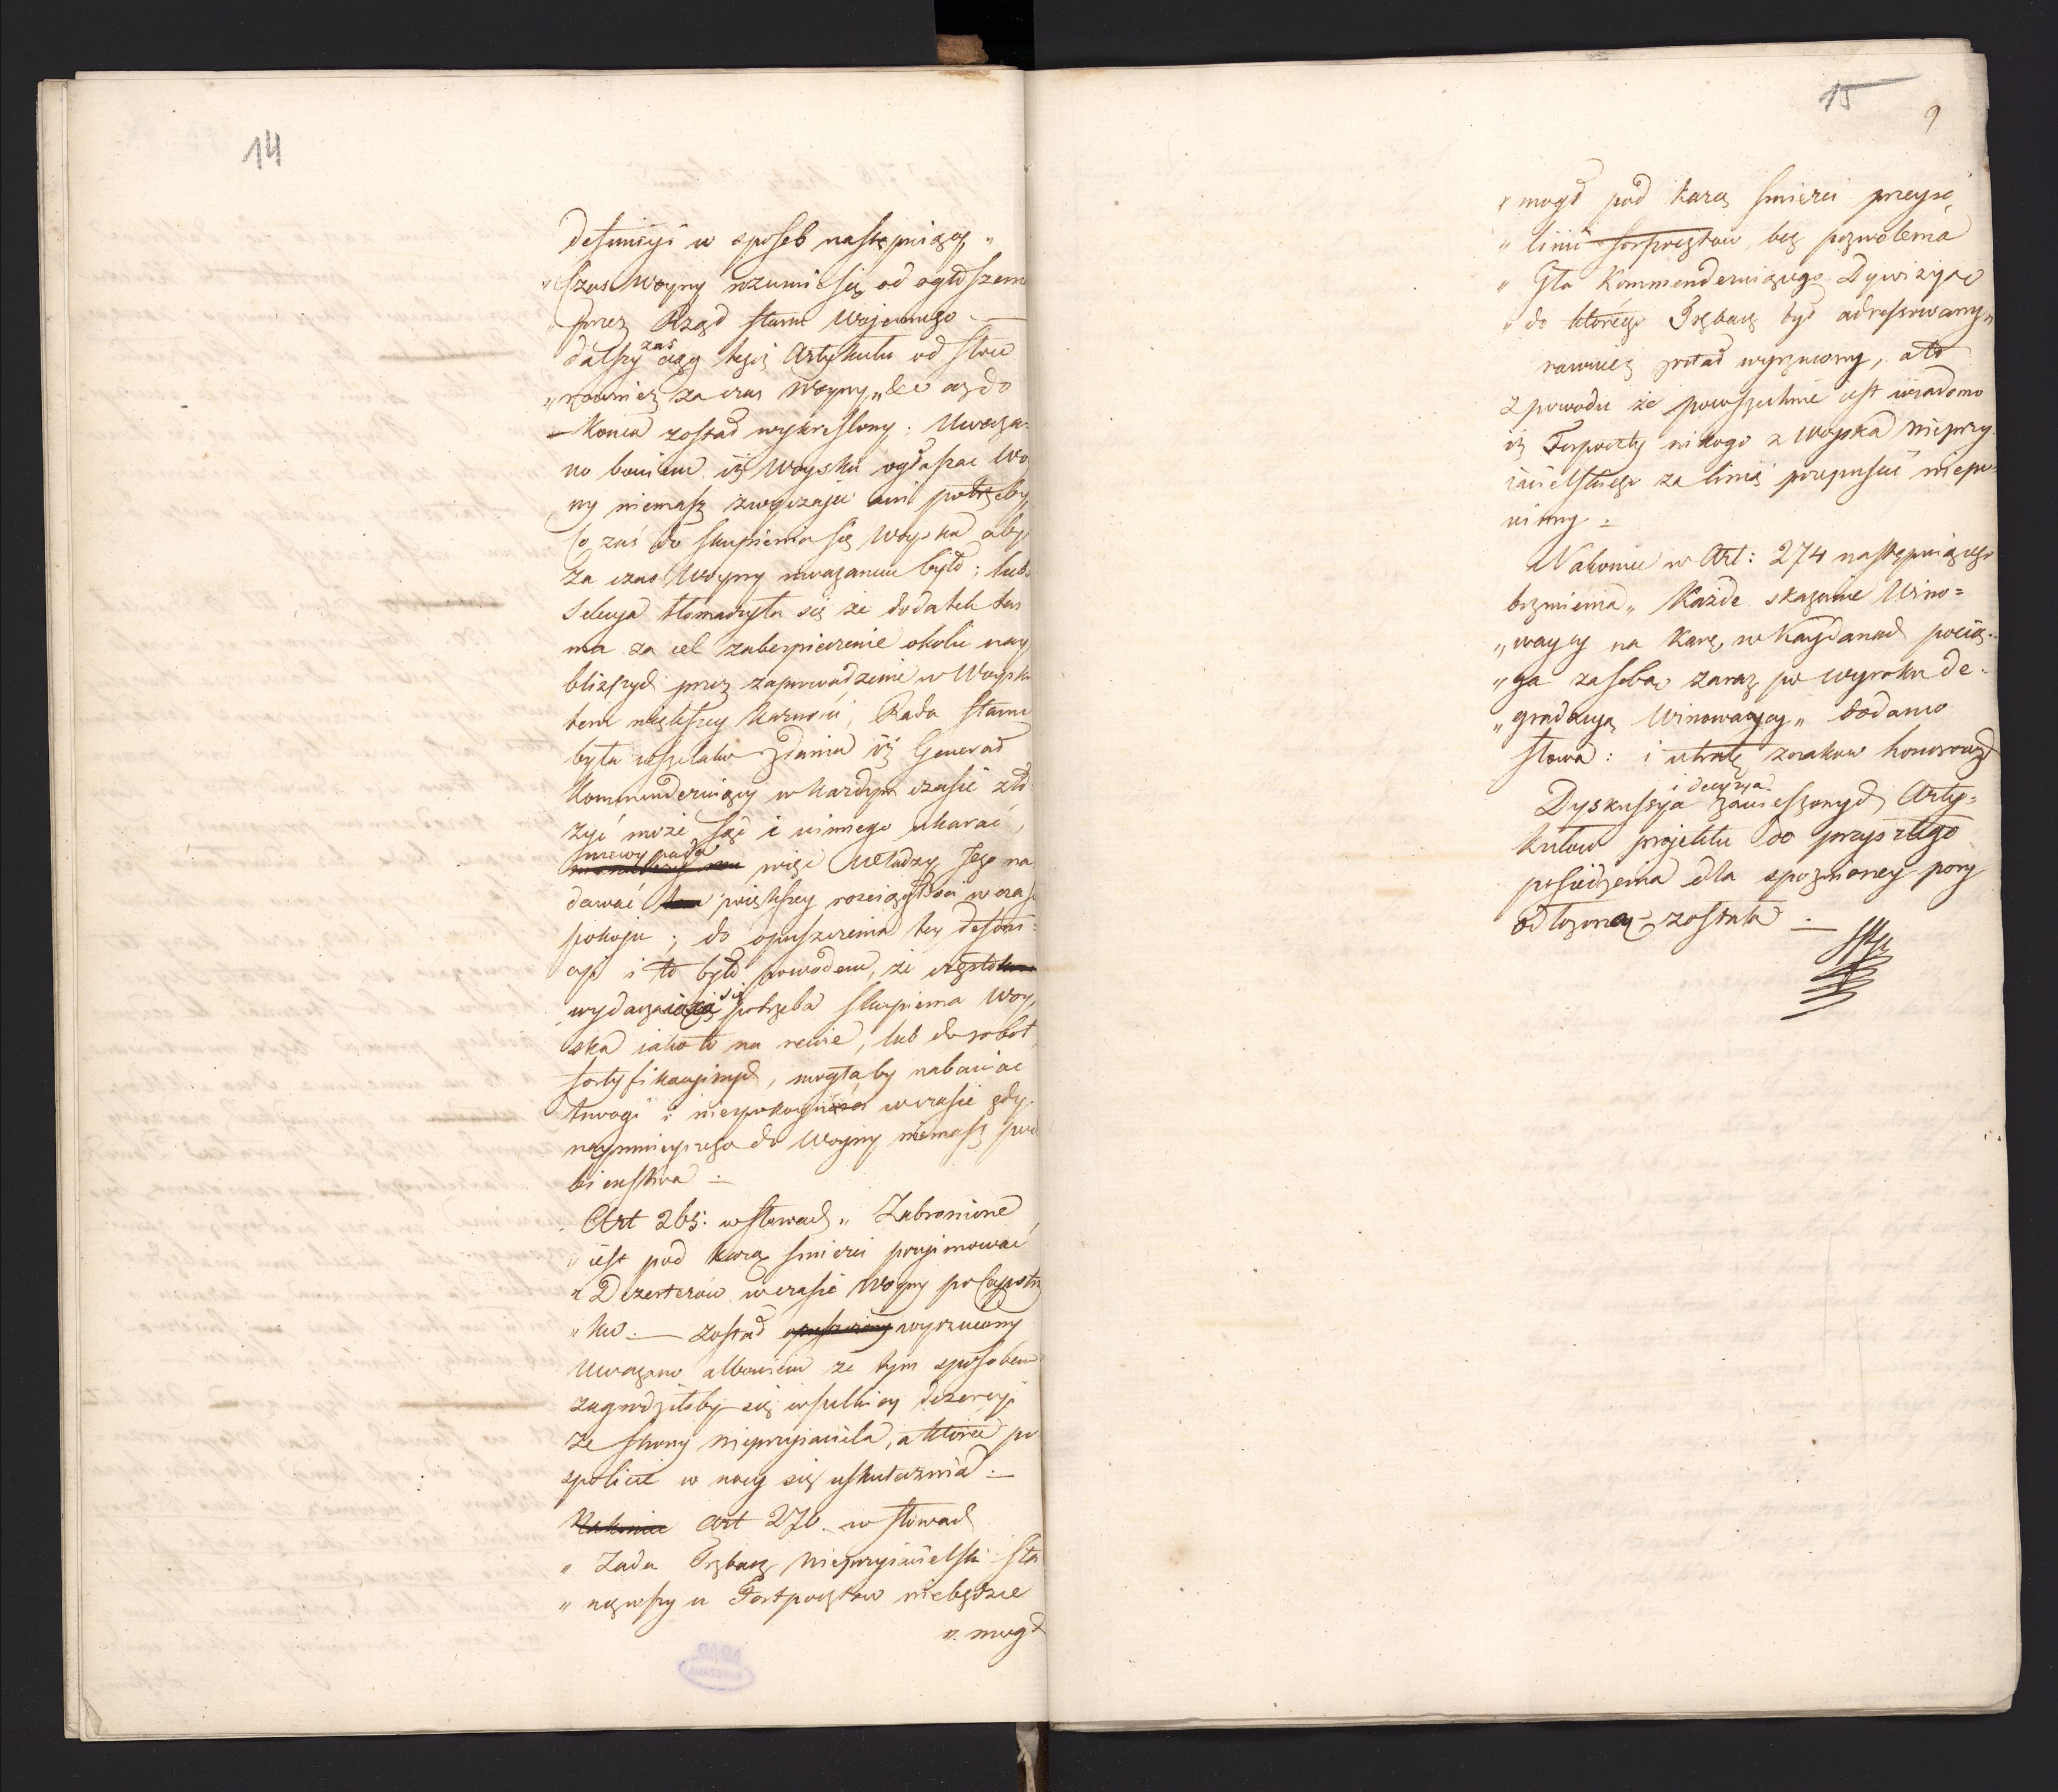 14
definicyi w sposob następuiący „
„ Czas Woyny rozumie się od ogłoszenia
„ przez Rząd stanu Wojennego. —
dalszy zaś ciąg tegoż Artykułu od słow
„ rownież za czas Woyny „ &c aż do
— Konca został wykreślony; Uważa-
no bowiem iż Woysku ogłaszać Wo
ny niemasz zwyczaju ani potrzeby,
Co zaś do skupienia się Woyska aby
za czas Woyny uważanem było; lubo
Sekcya tłomaczyła się że dodatek ten
ma za cel zabezpieczenie okolic nay
bliższych przez zaprowadzenie w Woysku
tem większey karności, Rada Stanu
była wszelako zdania iż Generał
Kommenderuiący w każdym czasie zło-
żyć może Sąd i winnego ukarać,
niewypada więc Władzy Jego na
dawać większey rozciągłości w czasie
pokoju; do opuszczenia tey defini-
cyi i to było powodem, że często
wydarzaiąca się potrzeba skupienia Woy-
ska iako to na rewie, lub do robot
fortyfikacyinych, mogłaby nabawiać
trwogi i niespokoyności w czasie gdy
naymnieyszego do Woyny niemasz podo
bieństwa .—
Art 265. w słowach „ Zabronione
„ iest pod karą śmierci przyimować
„ Dezerterów w czasie Woyny po Capstrzy
„ ku. — został opuszczony wyrzucony
Uważano albowiem że tym sposobem
zagrodziłoby się wszelkiey dezercyi
ze strony nieprzyiaciela, a które po
spolicie w nocy się uskutecznia .—
Nakoniec Art 270. w słowach
„ Żaden Trębacz nieprzyiacielski sta
„ nąwszy u Forpocztów niebędzie
„ mogł
15
9
„ mogł pod karą śmierci przeyść
„ linii forpocztów bez pozwolenia
„ Gła Kommenderuiącego Dywizyą
„ do którego Trębacz był adressowany „
rownież został wyrzucony, a to
z powodu że powszechnie iest wiadomo
iż Forpoczty nikogo z Woyska nieprzy
iacielskiego za linię przepuścić niepo-
winny .—
Nakoniec w Art: 274 następuiącego
brzmienia „ Każde skazanie Wino-
„ waycy na karę, w Kaydanach pocią-
„ ga za sobą zaraz po wyroku de-
„ gradacyą Winowaycy „ dodano
słowa: i utratę znakow honorowych
Dyskussya i decyzya zawieszonych Arty-
kułow projektu do przyszłego
posiedzenia dla spoznioney pory
odłożona została .—